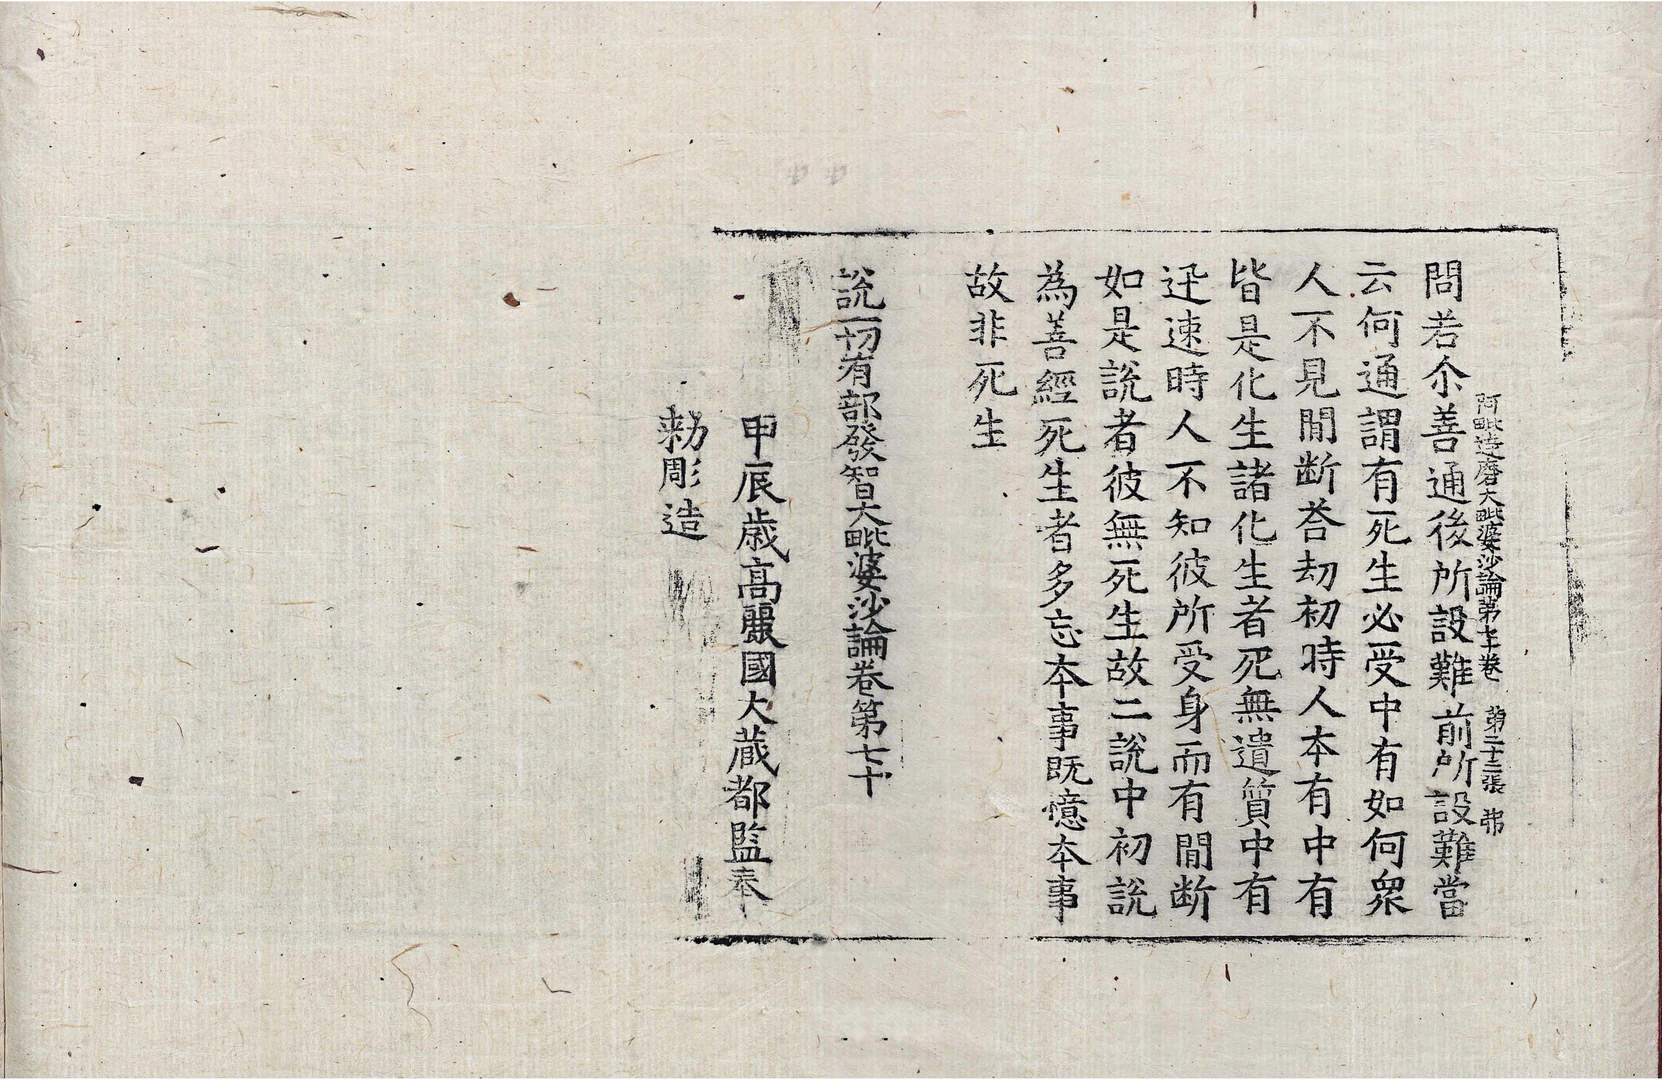 阿毗達磨大毗婆沙論第七十卷 第二十三張 弗
問若尒善通後所設難前所設難當
云何通謂有死生必受中有如何衆
人不見閒断荅劫初時人本有中有
皆是化生諸化生者死無遺質中有
迅速時人不知彼所受身而有閒断
如是說者彼無死生故二說中初說
為善經死生者多忘本事既憶本事
故非死生
說一切有部發智大毗婆沙論卷第七十
甲辰歲高麗國大藏都監奉
勑彫造